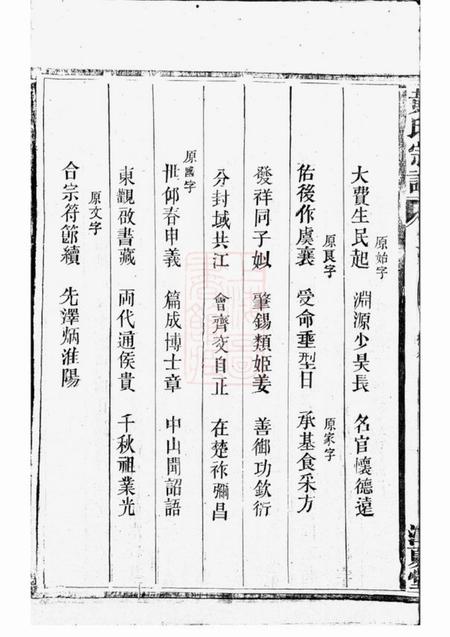 黃氏宗譜
原始字
大費生民起 淵源少昊長 名官懷德遠
原良字
原家字
佑後作虞襄 受命垂型日 承基食采方
發祥同子姒 肇錫類姬姜 善御功欽衍
分封域共江 會齊交自正 在楚祚彌昌
原國字
世仰春申義 篇成博士章 中山聞詔語
東觀啟書藏 兩代通侯貴 千秋祖業光
原文字
合宗符節續 先澤炳淮陽
江夏堂